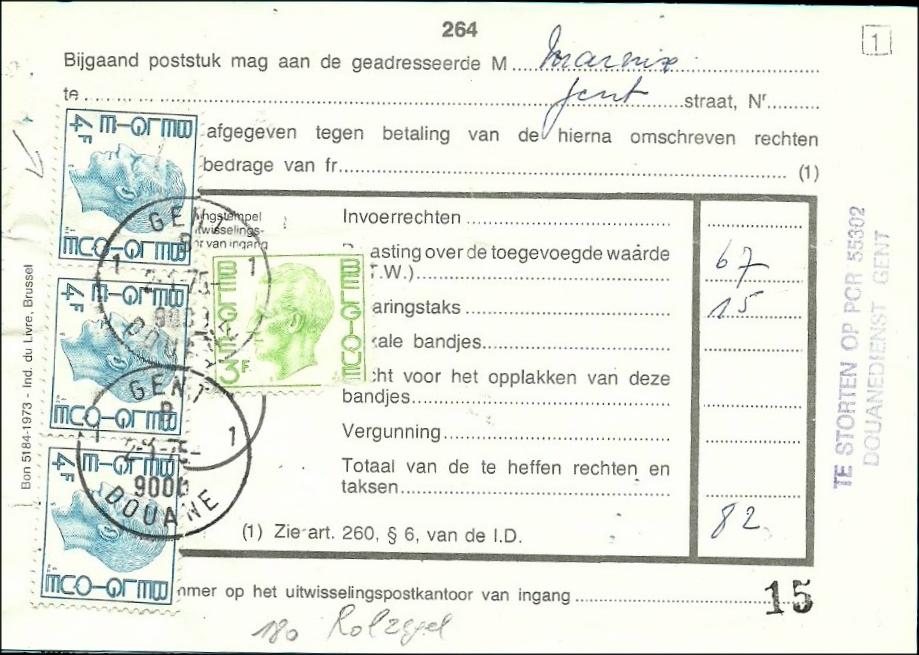 264
1
Bijgaand poststuk mag aan de geadresseerde M Marnix
te Gent straat, Nr
afgegeven tegen betaling van de hierna omschreven rechten
bedrage van fr. (1)
BELGIQUE-BELGIE 4F
BELGIQUE-BELGIE 4F
BELGIQUE-BELGIE 4F
BELGIQUE BELGIE 3F
ngstempel
itwisselings-
van ingang
GENT
B
1 1
2-1-75-
DOUANE
GENT
B
1 1
2-1-75-
9000
DOUANE
Invoerrechten
asting over de toegevoegde waarde 67
T.W.)
aringstaks 15
kale bandjes
cht voor het opplakken van deze
bandjes
Vergunning
Totaal van de te heffen rechten en
taksen 82
(1) Zie art. 260, § 6, van de I.D.
mmer op het uitwisselingspostkantoor van ingang 15
180 Rolzegel
Bon 5184-1973 - Ind. du Livre, Brussel
TE STORTEN OP PCR 55302
DOUANEDIENST GENT